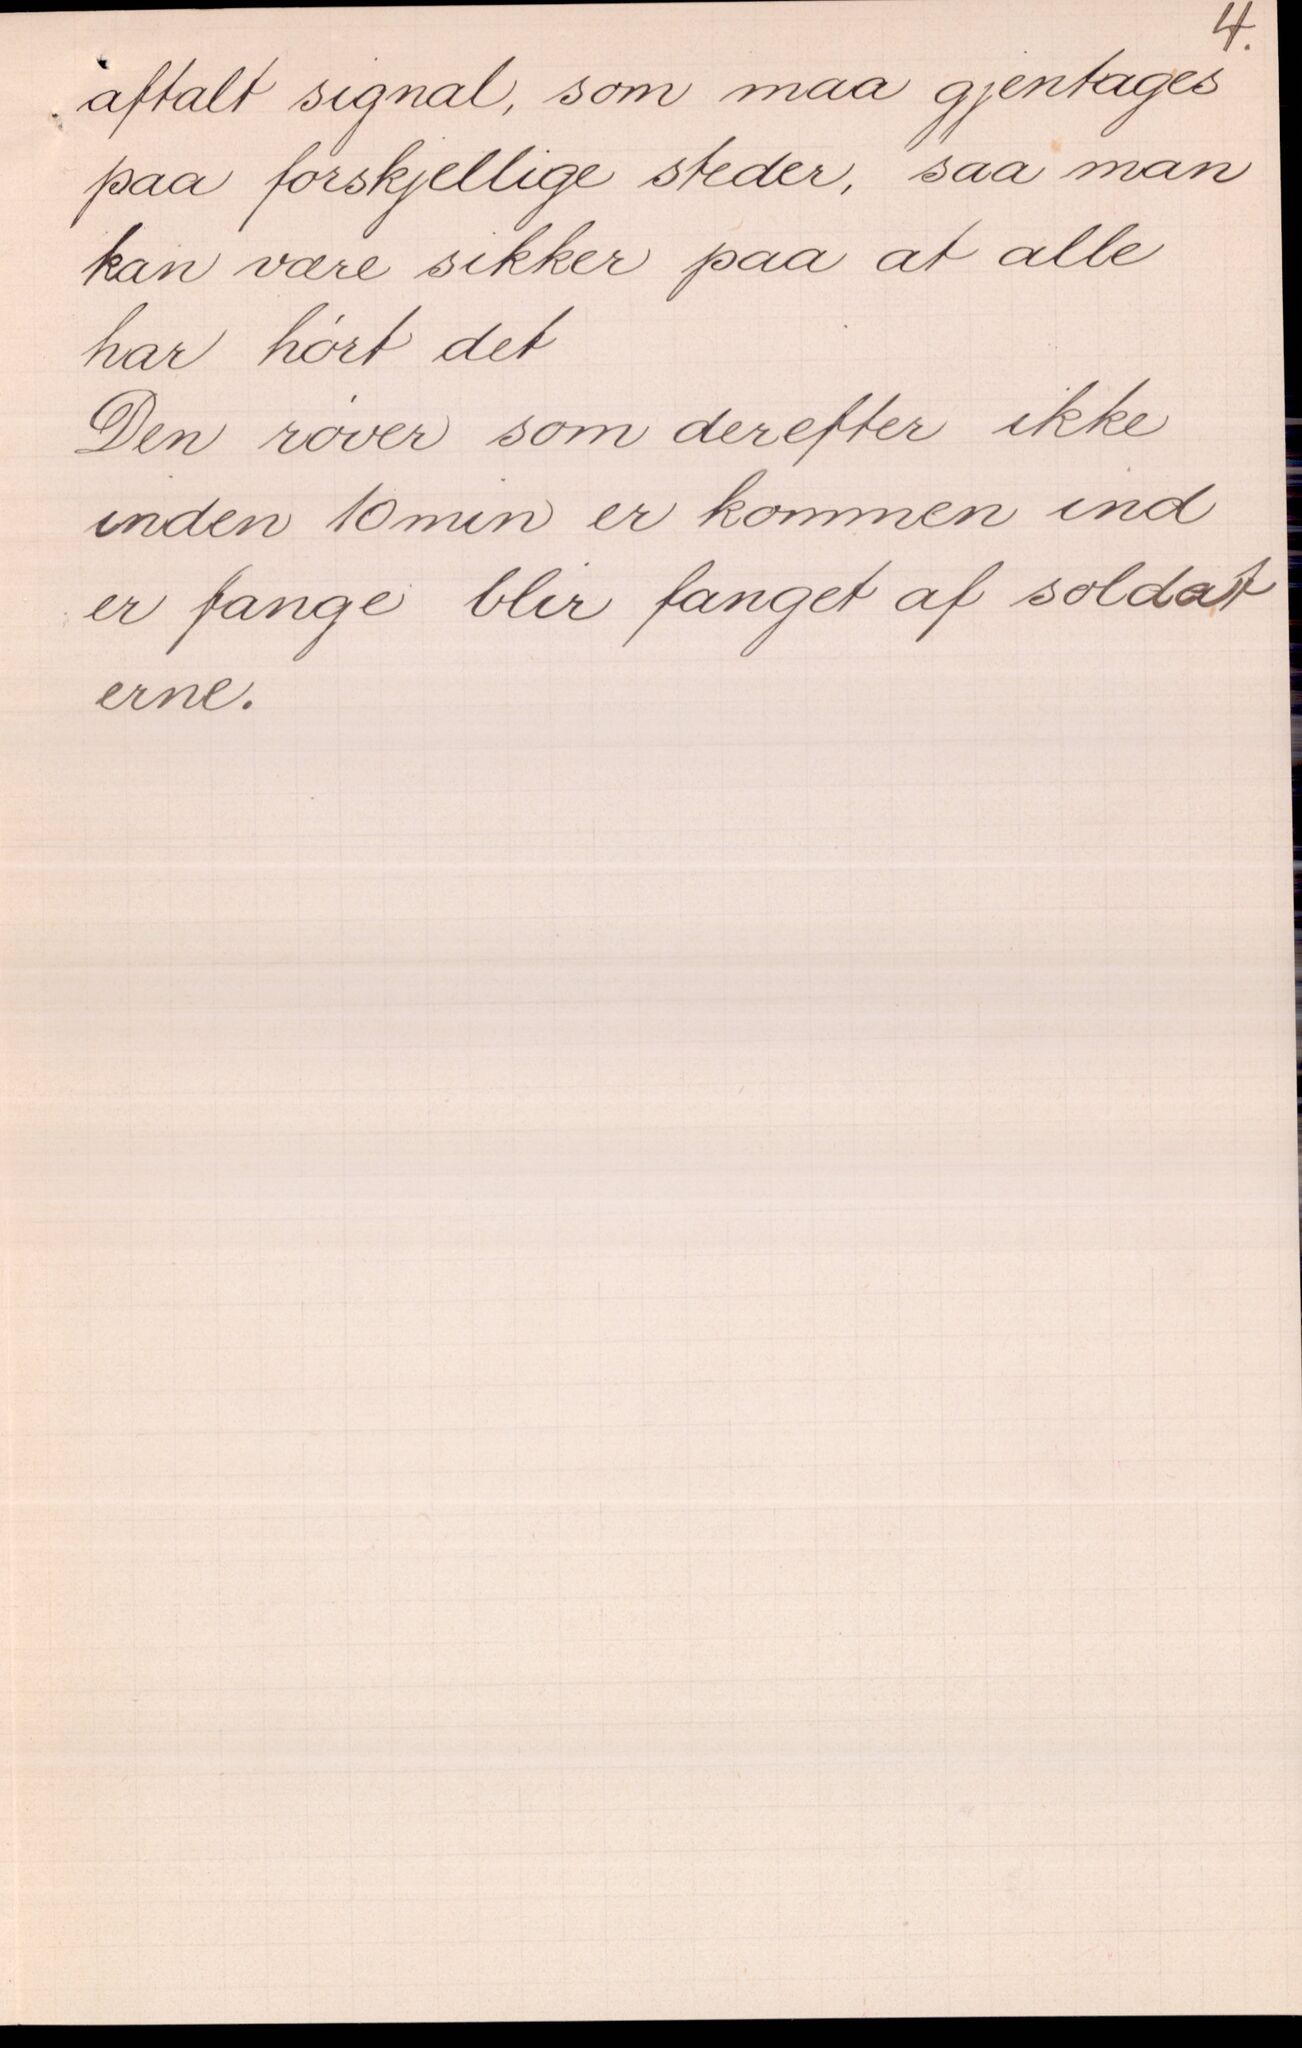 4.
aftalt signal, som maa gjentages
paa forskjellige steder, saa man
kan være sikker paa at alle
har hórt det
Den róver som derefter ikke
inden 10 min er kommen ind
er fange blir fanget af soldat
erne.